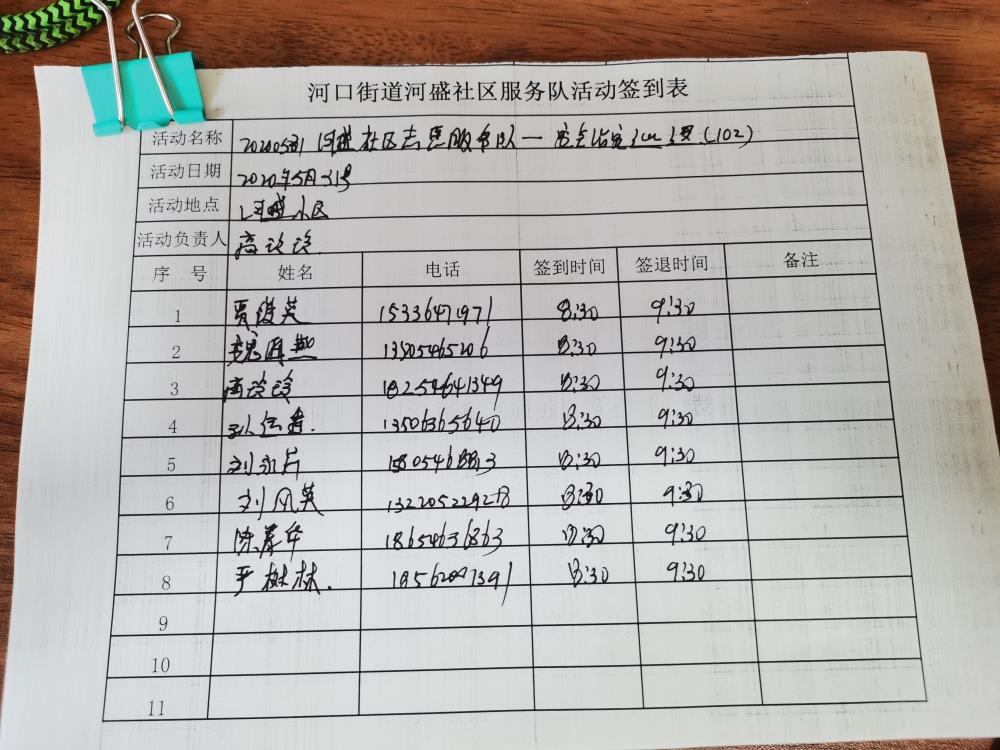 河口街道河盛社区服务队活动签到表
活动名称 20200531 河盛社区志愿服务队一 (102)
活动日期 2020年5月31号
活动地点 河盛小区
活动负责人 高
序 号 姓名 电话 签到时间 签退时间 备注
1 贾俊英 15336471971 8:30 9:30
2 13805465206 8:30 9:30
3 高 18254641349 8:30 9:30
4 13506365640 8:30 9:30
5 刘 8:30 9:30
6 刘凤英 13220522928 8:30 9:30
7 陈 华 18654636863 8:30 9:30
8 严树林 8:30 9:30
9
10
11